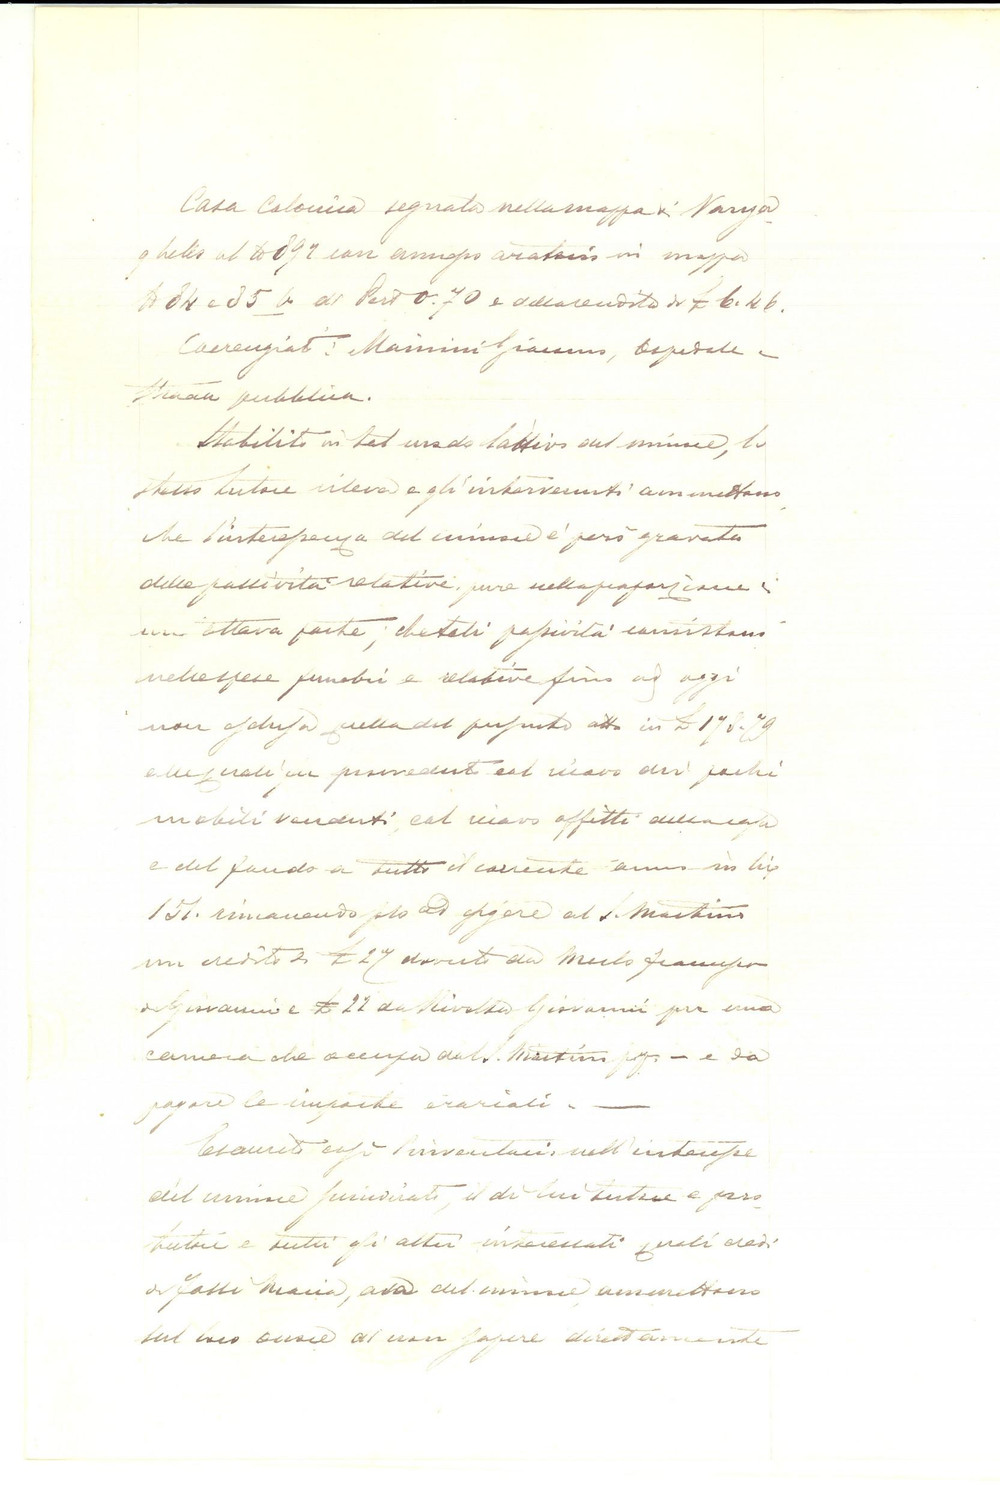 Casa Colonica segnata nella mappa di Vanza-
ghello al N 892 con annesso aratorio in mappa
N 84 e 85 b di Pert 0.70 e della rendita di £ 6.46.
Coerenziati: Mainini Giacomo, Ospedale e
Strada pubblica.
Stabilito in tal modo l'attivo del minore, lo
stesso tutore rileva e gli intervenuti ammettono
che l'interessenza del minore è però gravata
delle passività relative pure nella proporzione di
un ottava parte; che tali passività consistono
nelle spese funebri e relative fino ad oggi
non esclusa quella del presente atto in £ 178.79
alle quali fu provveduto col ricavo dei pochi
mobili venduti, col ricavo affitti della casa
e del fondo a tutto il corrente anno in lire
151. rimanendo solo ad esigere al S. Martino
un credito di £ 27 dovuto da Merlo Francesco
di Giovanni e £ 22 da Rivolta Giovanni per una
camera che occupa dal S. Martino — e da
pagare le imposte erariali. —
Esaurito così l'inventario nell'interesse
del minore, il di lui tutore e pro-
tutore e tutti gli altri interessati quali eredi
di Fassi Maria, ava del minore, ammettono
sul loro onore di non sapere direttamente